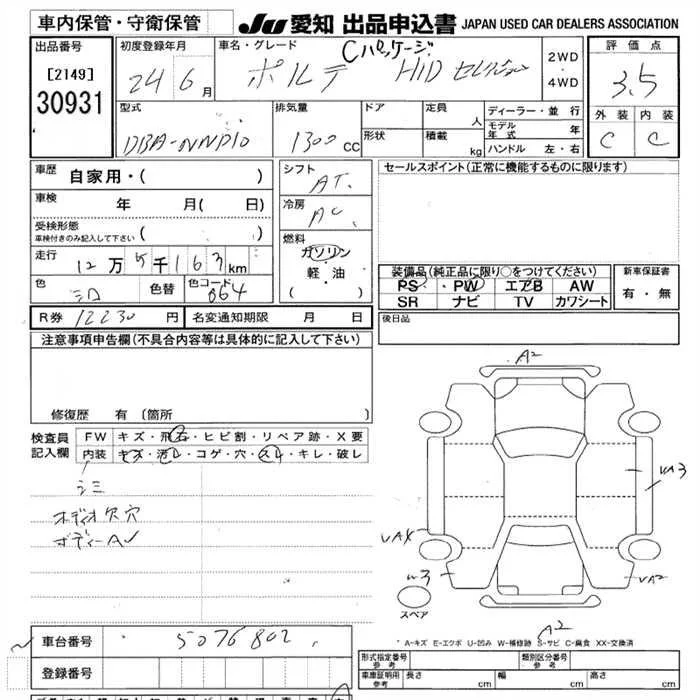 車内保管・守衛保管
JU 愛知 出品申込書 JAPAN USED CAR DEALERS ASSOCIATION
出品番号
[2149]
30931
初度登録年月
24 6月
車名・グレード
ポルテ Cパッケージ HID セレクション
2WD
・
4WD
評価点
3.5
外装 内装
C C
型式
DBA-NNP10
排気量
1300cc
ドア
形状
定員 人
積載 kg
ディーラー・並行
モデル年式 年
ハンドル 左・右
車歴
自家用・( )
車検 年 月( 日)
受検形態
車検付きのみ記入して下さい ( )
走行
12万5千163km
色
シロ
色替
色コード
064
シフト
AT
冷房
AC
燃料
ガソリン
軽・油
( )
セールスポイント(正常に機能するものに限ります)
装備品(純正品に限り○をつけてください)
PS PW エアB AW
SR ナビ TV カワシート
新車保証書
有・無
R券 12230円
名変通知期限 月 日
後日品
注意事項申告欄(不具合内容等は具体的に記入して下さい)
修復歴 有(箇所
検査員
記入欄
FW キズ・飛石・ヒビ割・リペア跡・X要
内装 キズ・汚レ・コゲ・穴・スレ・キレ・破レ
シミ
オーディオ欠穴
ボディーAU
A2
UA3
UA2
W3
スペア
A2
A-キズ E-エクボ U-凹み W-補修跡 S-サビ C-腐食 XX-交換済
車台番号 5076802
登録番号
形式指定番号
参考
類別区分番号
参考
車庫証明用
参考
長さ cm 幅 cm 高さ cm